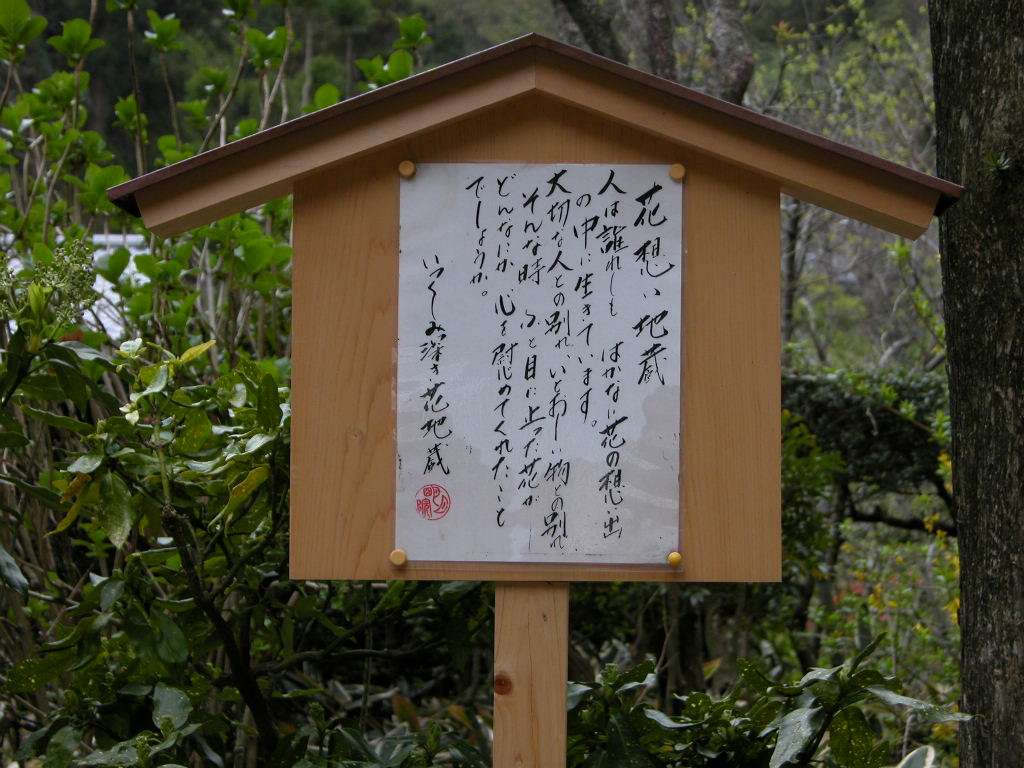 花想い地蔵
人は誰れしも はかない花の想い出
の中に生きています。
大切な人との別れ、いとおしい物との別れ
そんな時 ふと目に止った花が
どんなにか 心を慰めてくれたことも
でしょうか。
いつくしみ深き花地蔵